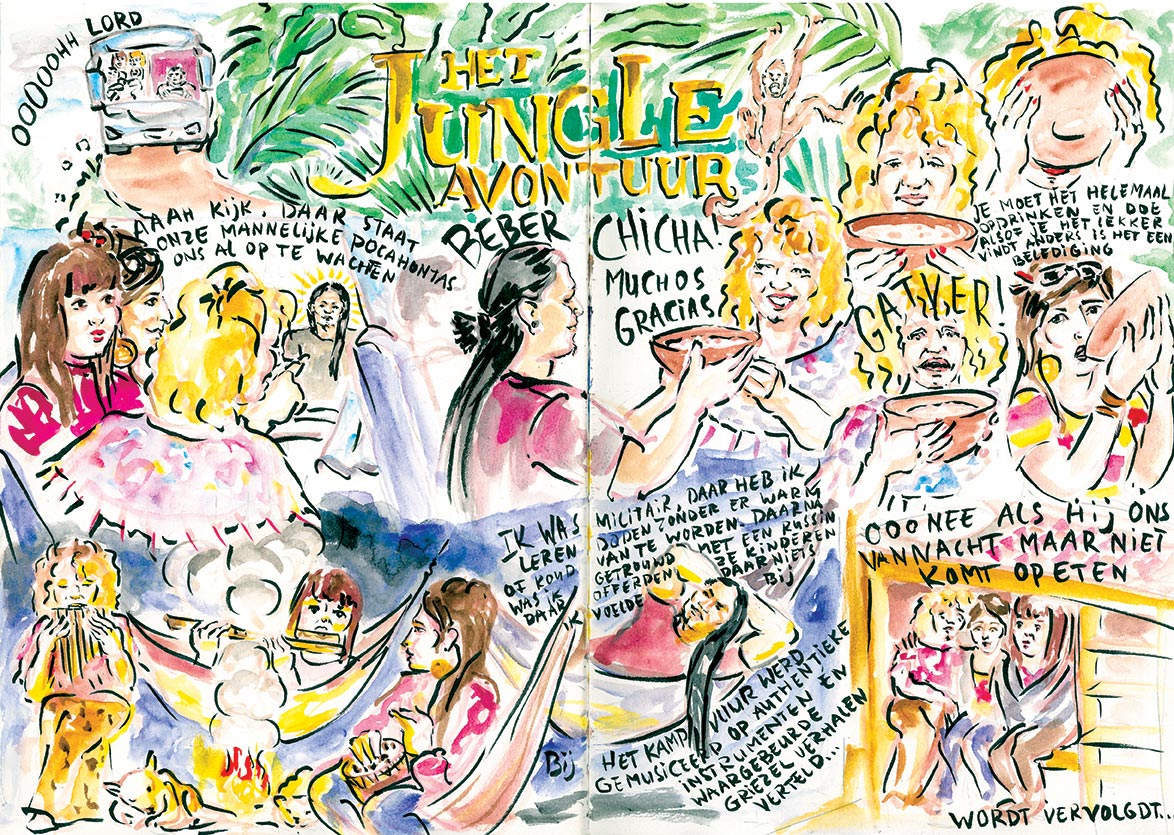 OOOOOHH LORD
HET
JUNGLE
AVONTUUR
AAAH KIJK, DAAR STAAT
ONZE MANNELIJKE POCAHONTAS
ONS AL OP TE WACHTEN
BEBER
CHICHA!
MUCHOS
GRACIAS
JE MOET HET HELEMAAL
OPDRINKEN EN DOE
ALSOF JE HET LEKKER
VINDT ANDERS IS HET EEN
BELEDIGING
GATVER!
IK WAS MILITAIR, DAAR HEB IK
LEREN DODEN ZONDER ER WARM
OF KOUD VAN TE WORDEN. DAARNA
WAS IK GETROUWD MET EEN RUSSIN
DAAR OFFERDEN ZE KINDEREN
IK VOELDE DAAR NIETS
BIJ
Bij
HET KAMPVUUR WERD
GEMUSICEERD OP AUTHENTIEKE
INSTRUMENTEN EN
WAARGEBEURDE
GRIEZEL VERHALEN
VERTELD...
OOO NEE ALS HIJ ONS
VANNACHT MAAR NIET
KOMT OPETEN
WORDT VERVOLGDT..